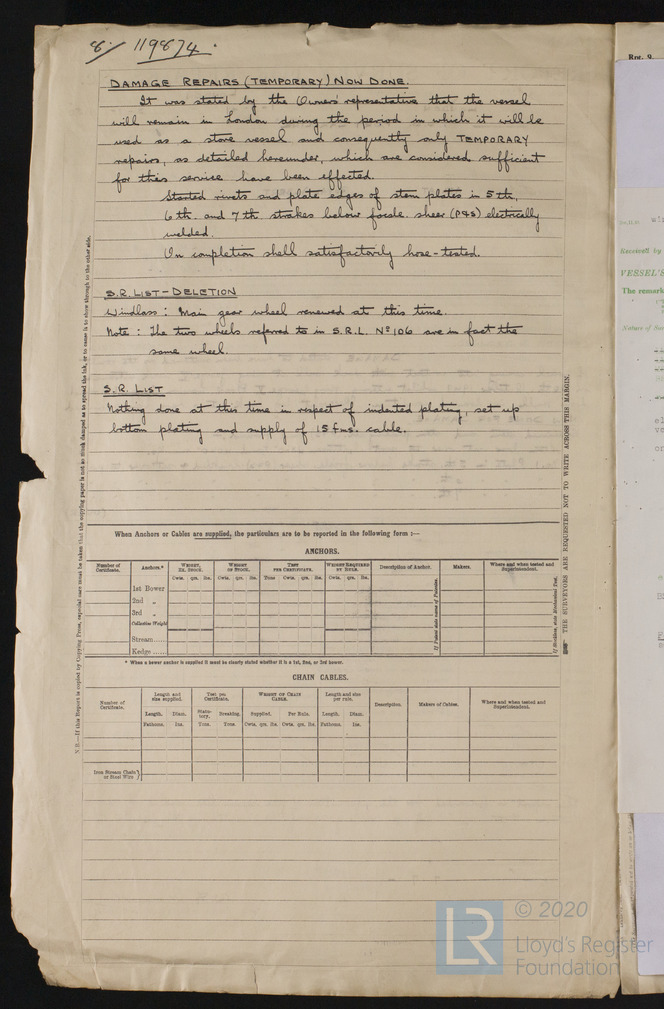 8/ 119874.
DAMAGE REPAIRS (TEMPORARY) NOW DONE.
It was stated by the Owners' representative that the vessel
will remain in London during the period in which it will be
used as a store vessel and consequently only TEMPORARY
repairs, as detailed hereunder, which are considered sufficient
for this service have been effected.
Started rivets and plate edges of stem plates in 5th,
6th. and 7th strakes below focsle. sheer (P&S) electrically
welded.
On completion shell satisfactorily hose-tested.
S.R. LIST - DELETION
Windlass: Main gear wheel renewed at this time.
Note: The two wheels referred to in S.R.L. Nº 106 are in fact the
same wheel.
S.R. LIST
Nothing done at this time in respect of indented plating, set up
bottom plating and supply of 15 fms. cable.
When Anchors or Cables are supplied, the particulars are to be reported in the following form :—
ANCHORS.
Number of Certificate. Anchors.* WEIGHT, EX. STOCK. WEIGHT OF STOCK. TEST PER CERTIFICATE. WEIGHT REQUIRED BY RULE. Description of Anchor. Makers. Where and when tested and Superintendent.
Cwts. qrs. lbs. Cwts. qrs. lbs. Tons Cwts. qrs. lbs. Cwts. qrs. lbs.
1st Bower
2nd „
3rd „
Collective Weight
Stream
Kedge
* When a bower anchor is supplied it must be clearly stated whether it is a 1st, 2nd, or 3rd bower.
CHAIN CABLES.
Number of Certificate. Length and size supplied. Test per Certificate. WEIGHT OF CHAIN CABLE. Length and size per rule. Description. Makers of Cables. Where and when tested and Superintendent.
Length. Diam. Statutory. Breaking. Supplied. Per Rule. Length. Diam.
Fathoms. Ins. Tons. Tons. Cwts. qrs. lbs. Cwts. qrs. lbs. Fathoms. Ins.
Iron Stream Chain or Steel Wire
N.B.—If this Report is copied by Copying Press, especial care must be taken that the copying paper is not so much damped as to spread the ink, or to cause it to show through to the other side.
THE SURVEYORS ARE REQUESTED NOT TO WRITE ACROSS THIS MARGIN.
Rpt. 9
Received by
VESSEL'S
The remark
Nature of
LR
© 2020
Lloyd's Register
Foundation